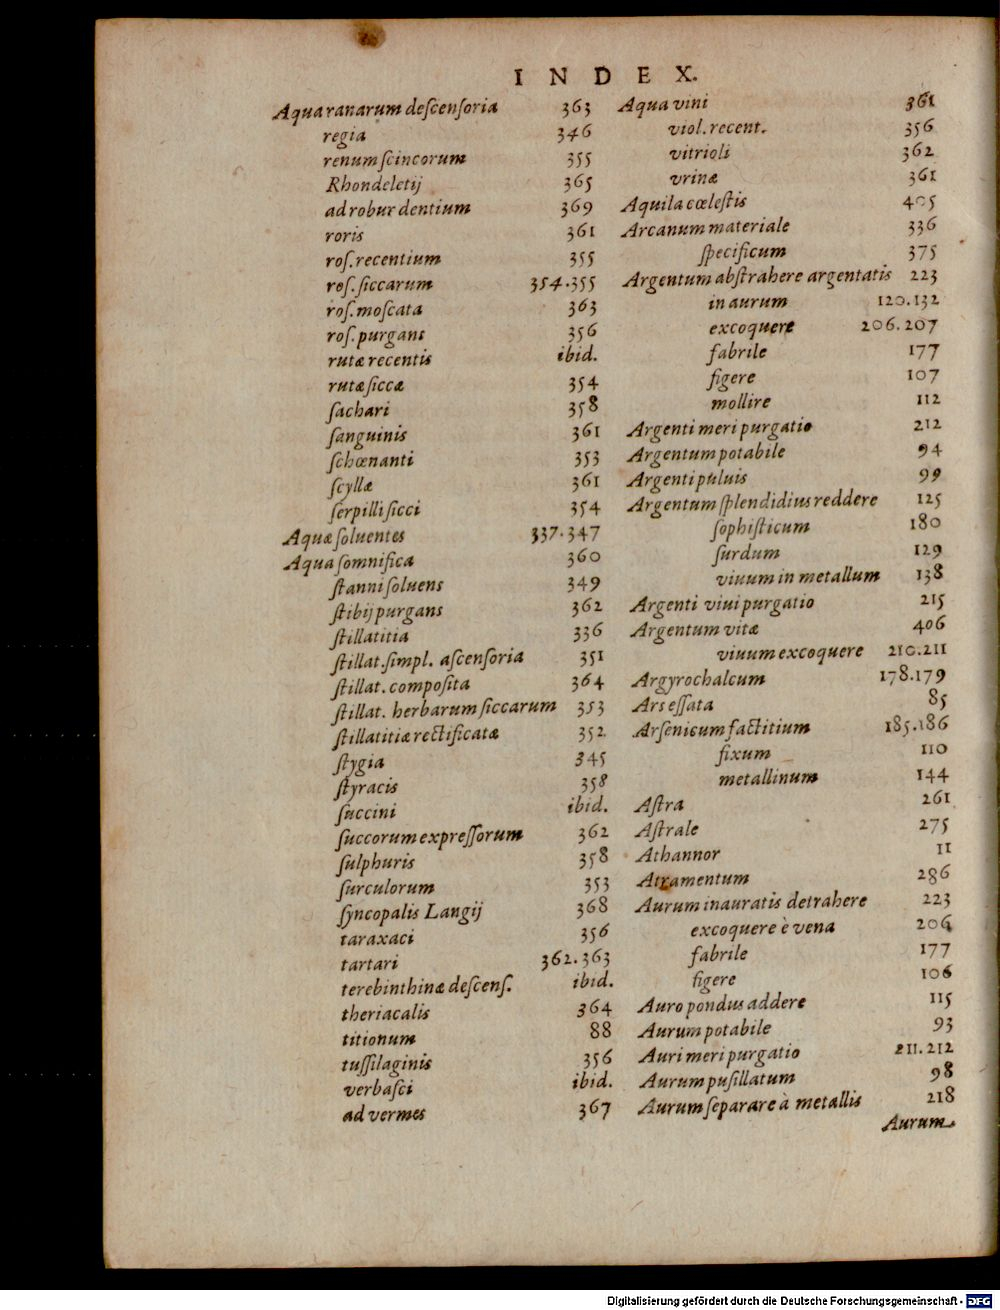 INDEX.
Aqua ranarum deſcenſoria 363
regia 346
renum ſcincorum 355
Rhondeletij 365
ad robur dentium 369
roris 361
roſ. recentium 355
roſ. ſiccarum 354.355
roſ. moſcata 363
roſ. purgans 356
rutæ recentis ibid.
rutæ ſiccæ 354
ſachari 358
ſanguinis 361
ſchœnanti 353
ſcyllæ 361
ſerpilli ſicci 354
Aquæ ſoluentes 337.347
Aqua ſomnifica 360
ſtanni ſoluens 349
ſtibij purgans 362
ſtillatitia 336
ſtillat. ſimpl. aſcenſoria 351
ſtillat. compoſita 364
ſtillat. herbarum ſiccarum 353
ſtillatitiæ rectificatæ 352
ſtygia 345
ſtyracis 358
ſuccini ibid.
ſuccorum expreſſorum 362
ſulphuris 358
ſurculorum 353
ſyncopalis Langij 368
taraxaci 356
tartari 362.363
terebinthinæ deſcenſ. ibid.
theriacalis 364
titionum 88
tuſſilaginis 356
verbaſci ibid.
ad vermes 367
Aqua vini 361
viol. recent. 356
vitrioli 362
vrinæ 361
Aquila cœleſtis 405
Arcanum materiale 336
ſpecificum 375
Argentum abſtrahere argentatis 223
in aurum 120.132
excoquere 206.207
fabrile 177
figere 107
mollire 112
Argenti meri purgatio 212
Argentum potabile 94
Argenti puluis 99
Argentum ſplendidius reddere 125
ſophiſticum 180
ſurdum 129
viuum in metallum 138
Argenti viui purgatio 215
Argentum vitæ 406
viuum excoquere 210.211
Argyrochalcum 178.179
Ars eſſata 85
Arſenicum factitium 185.186
fixum 110
metallinum 144
Aſtra 261
Aſtrale 275
Athannor 11
Atramentum 286
Aurum inauratis detrahere 223
excoquere è vena 206
fabrile 177
figere 106
Auro pondus addere 115
Aurum potabile 93
Auri meri purgatio 211.212
Aurum puſillatum 98
Aurum ſeparare à metallis 218
Aurum
Digitalisierung gefördert durch die Deutsche Forschungsgemeinschaft - DFG